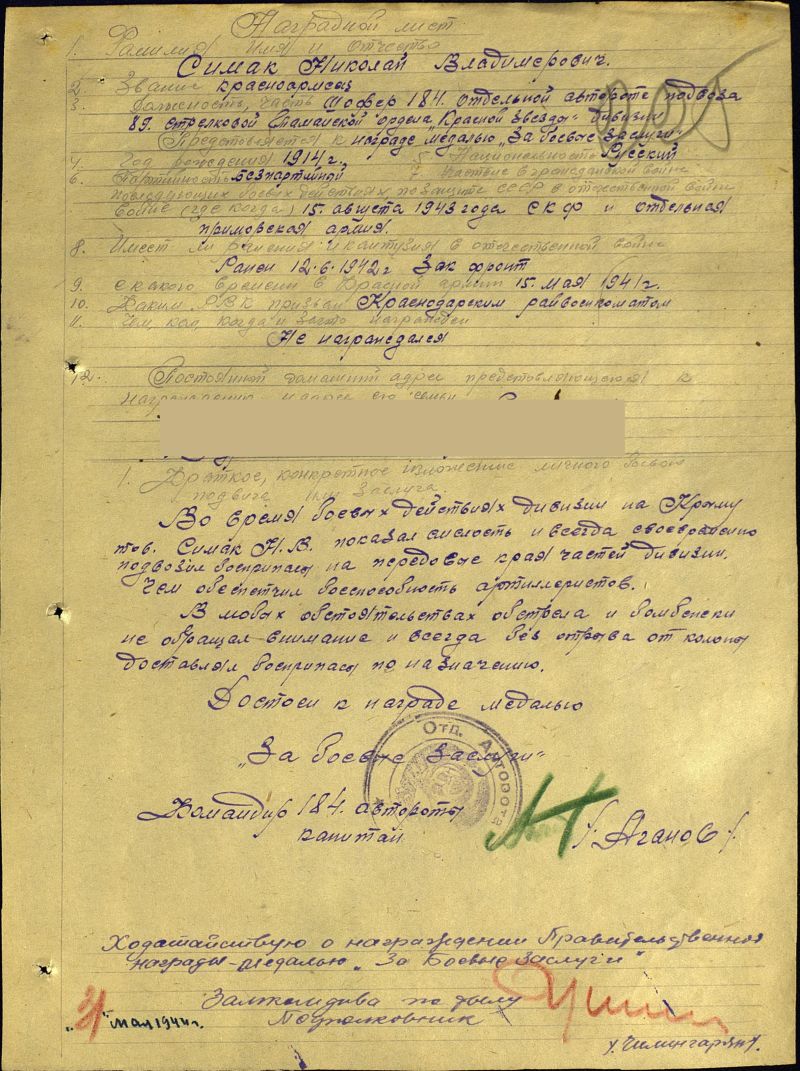 Наградной лист.
1. Фамилия Имя и Отчество
Симак Николай Владимерович.
2. Звание красноармеец
3. Должность, часть Шофер 184. отдельной автороте подвоза
89. стрелковой Таманской ордена "Красной Звезды" дивизии
Представляется к награде медалью "За боевые Заслуги"
4. Год рождения 1914 г. 5. Национальность Русский
6. Партийность Безпартийной 7. Участие в гражданской войне
последующих боевых действиях по защите СССР в отечественной войне
войне (где когда) 15. августа 1943 года СКФ и отдельная
приморская армия.
8. Имеет ли ранения и контузия в отечественной войне
Ранен 12.6.1942 г Зак фронт
9. с какого времени в Красной армии 15. мая 1941 г.
10. Каким РВК призван Краснодарским райвоенкоматом
11. Чем, когда и за что награжден
Не награждался
12. Постоянный домашний адрес представляющегося к
награждению и адрес его семьи
1. Краткое, конкретное изложение личного боевого
подвига или заслуга.
Во время боевых действиях дивизии на Крыму
тов. Симак Н.В. показал смелость и всегда своевременно
подвозил боеприпасы на передовые края частей дивизии.
Чем обеспечил боеспособность артиллеристов.
В любых обстоятельствах обстрела и бомбежки
не обращал внимание и всегда без отрыва от колоны
доставлял боеприпасы по назначению.
Достоен к награде медалью
"За боевые Заслуги"
Отд. Авторота
Командир 184. автороты
капитан /Аганов/.
Ходатайствую о награждении Правительственной
награды-медалью "За Боевые Заслуги"
Замкомдива по тылу
Подполковник
"21" мая 1944 г.
/Чилингарян/.